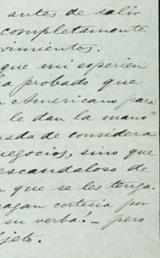 antes de salir
completamente
vimientos.
que mi experien
a probado que
Americans para
le dan la mano
nada de considera
negocios, sino que
escandaloso de
n que se les tenga.
cortesia por
su verba! – pero
jeto.